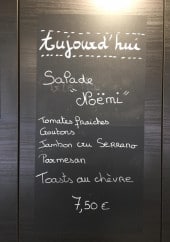 Aujourd'hui
Salade
"Noëmi"
Tomates fraiches
Croutons
Jambon cru Serrano
Parmesan
Toasts au chèvre
7,50 €